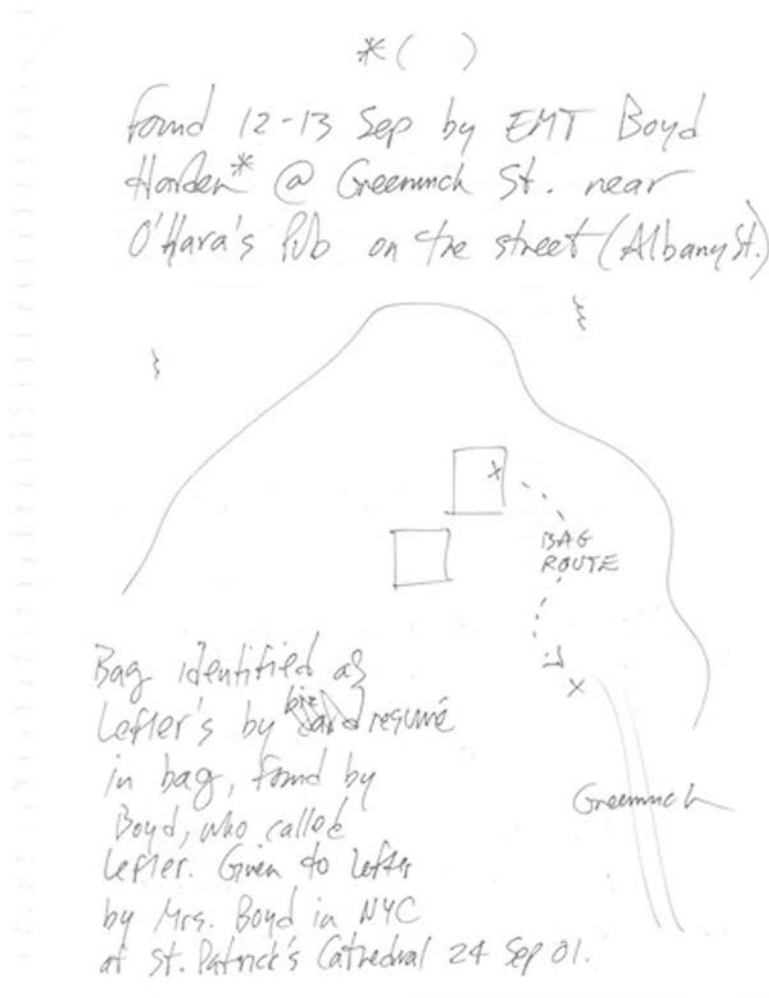 *( )
Found 12-13 Sep by EMT Boyd
Harden* @ Greenwich St. near
O'Hara's Pub on the street (Albany St.)
BAG
ROUTE
Bag identified as
Lefter's by resumé
in bag, found by
Boyd, who called
Lefter. Given to Lefter
by Mrs. Boyd in NYC
at St. Patrick's Cathedral 24 Sep 01.
Greenwich